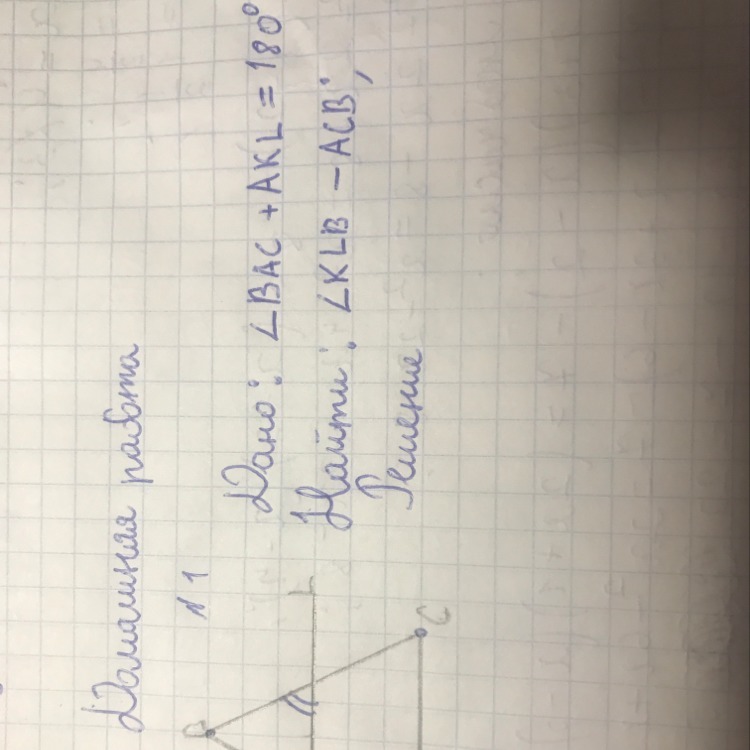 Домашняя работа
N 1
Дано: ∠BAC + AKL = 180°
Найти: ∠KLB - ACB;
Решение
B
L
C